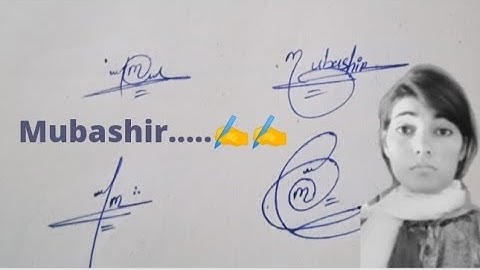 m
Mubashir
Mubashir.....✍️✍️
m
m